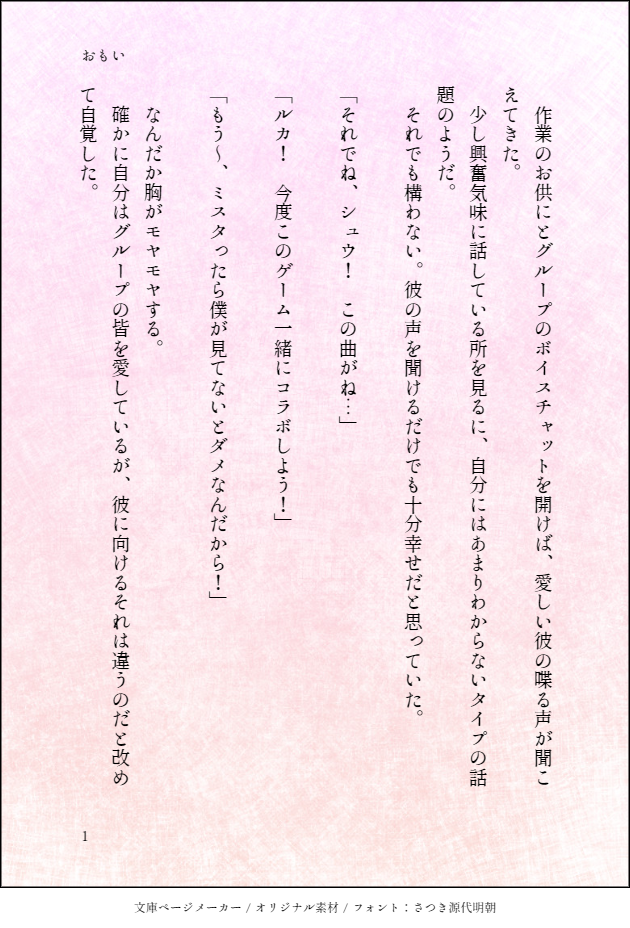 おもい
作業のお供にとグループのボイスチャットを開けば、愛しい彼の喋る声が聞こ
えてきた。
少し興奮気味に話している所を見るに、自分にはあまりわからないタイプの話
題のようだ。
それでも構わない。彼の声を聞けるだけでも十分幸せだと思っていた。
「それでね、シュウ！　この曲がね…」
「ルカ！　今度このゲーム一緒にコラボしよう！」
「もう〜、ミスタったら僕が見てないとダメなんだから！」
なんだか胸がモヤモヤする。
確かに自分はグループの皆を愛しているが、彼に向けるそれは違うのだと改め
て自覚した。
1
文庫ページメーカー / オリジナル素材 / フォント：さつき源代明朝